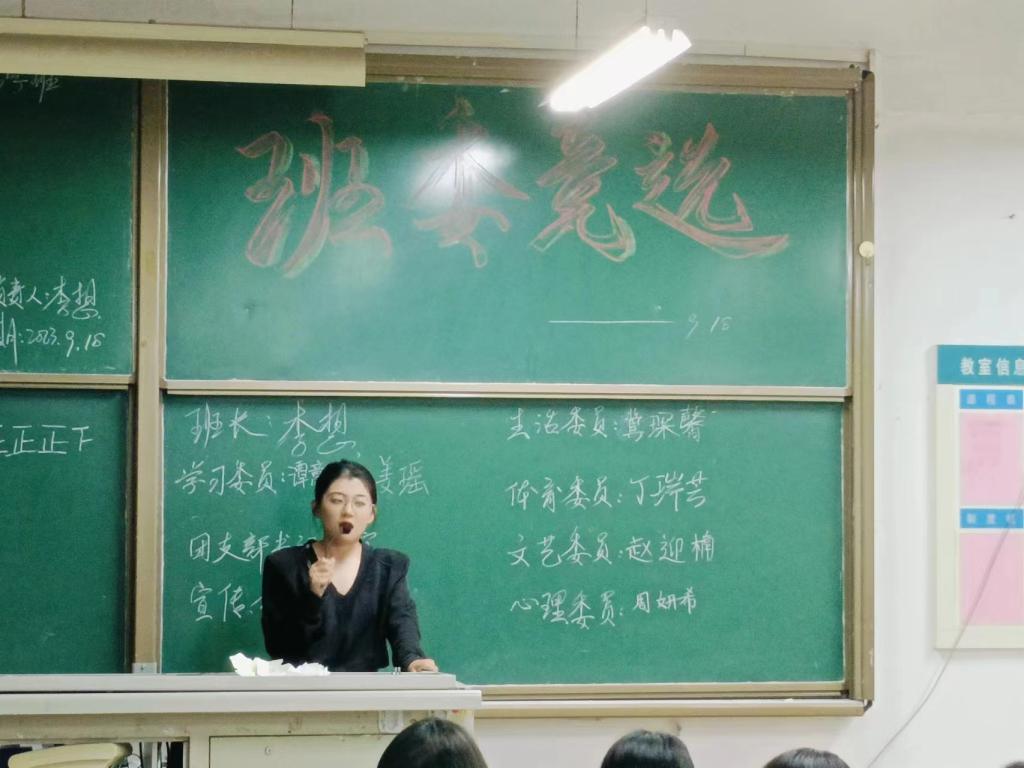 班委竞选
9.18
责人:李想
期:2023.9.18
正正正下
班长:李想
学习委员:谭 姜瑶
团支部书
宣传
生活委员:鸷琛馨
体育委员:丁瑞芸
文艺委员:赵迎楠
心理委员:周妍希
教室信息
课程表